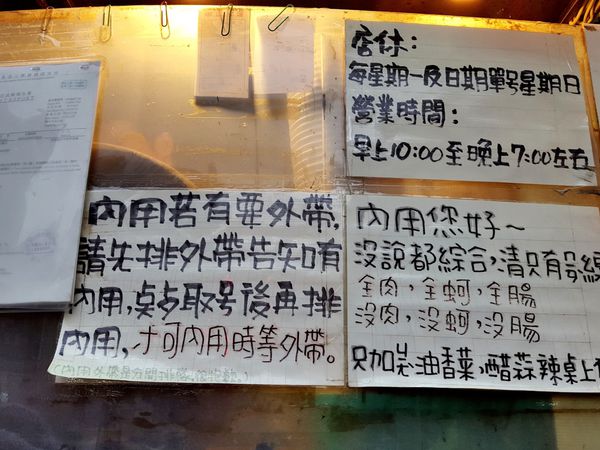 店休：
每星期一及日期單號星期日
營業時間：
早上10:00至晚上7:00左右
內用若有要外帶，
請先排外帶告知有
內用，點步取号後再排
內用，才可內用時等外帶。
內用您好～
沒說都綜合，清只有
全肉，全蚵，全腸
沒肉，沒蚵，沒腸
只加 油香菜，醋蒜辣桌上